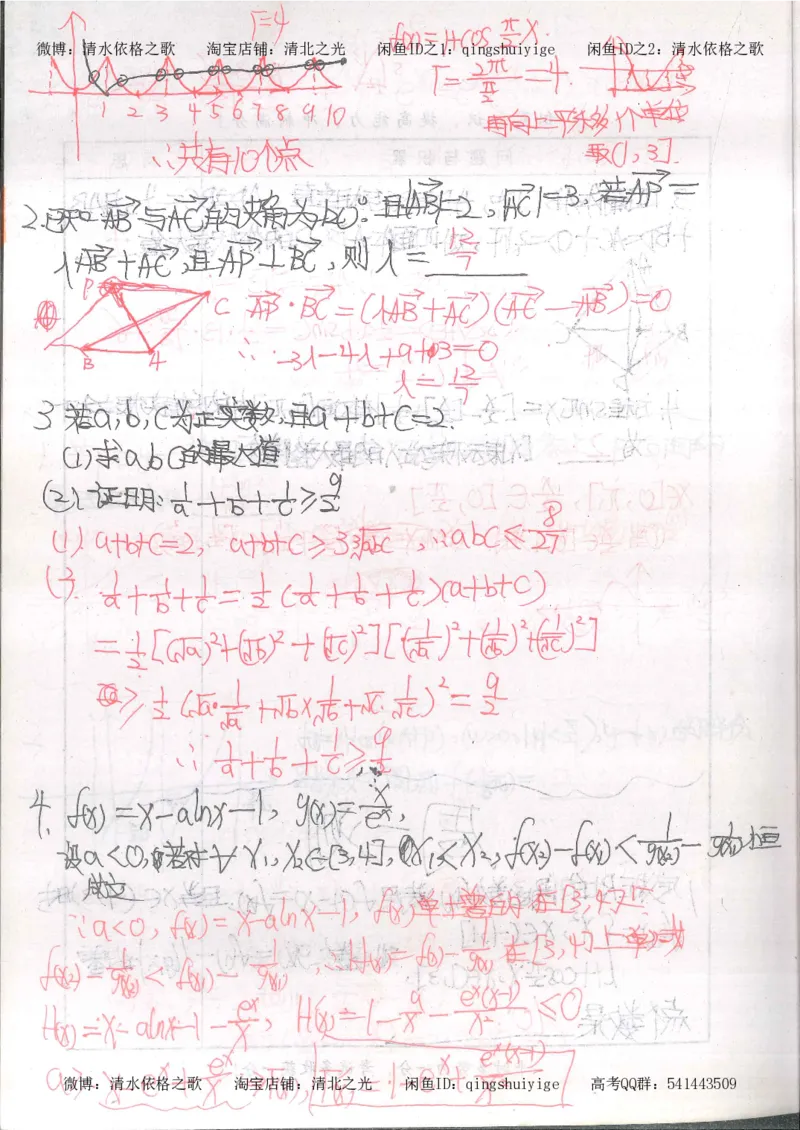 T=4
f(x)=1+cos π/2 x.
微博：清水依格之歌 淘宝店铺：清北之光 闲鱼ID之1：qingshuiyige 闲鱼ID之2：清水依格之歌
T=2π/(π/2)=4
1 2 3 4 5 6 7 8 9 10
再向上平移1个单位
取(1,3].
∴共有10个点
2.已知AB与AC的夹角为120°.且|AB|=2,|AC|=3,若AP=
λAB+AC,且AP⊥BC,则λ=12/7
P C B A
AP·BC=(λAB+AC)(AC-AB)=0
∴-3λ-4λ+9+3=0
λ=12/7
3 若a,b,c为正实数,且a+b+c=2.
(1)求abc的最大值
(2)证明:1/a+1/b+1/c≥9/2
(1).a+b+c=2, a+b+c≥3∛abc,∴abc≤8/27
1/a+1/b+1/c=1/2(1/a+1/b+1/c)(a+b+c)
=1/2[(√a)²+(√b)²+(√c)²][(1/√a)²+(1/√b)²+(1/√c)²]
≥1/2(√a·1/√a+√b×1/√b+√c·1/√c)²=9/2
∴1/a+1/b+1/c≥9/2
4. f(x)=x-alnx-1, g(x)=x/eˣ,
设a<0,若对∀x₁,x₂∈[3,4],x₁<x₂,f(x₂)-f(x₁)<1/g(x₂)-1/g(x₁)恒
成立
∵a<0, f(x)=x-alnx-1, f(x)单士曾 在[3,4]上
f(x₂)-1/g(x₂)<f(x₁)-1/g(x₁), ∴H(x)=f(x)-1/g(x)在[3,4]上单
H(x)=x-alnx-1-eˣ/x, H(x)=1-a/x-eˣ(x-1)/x²≤0
微博：清水依格之歌 淘宝店铺：清北之光 闲鱼ID：qingshuiyige 高考QQ群：541443509